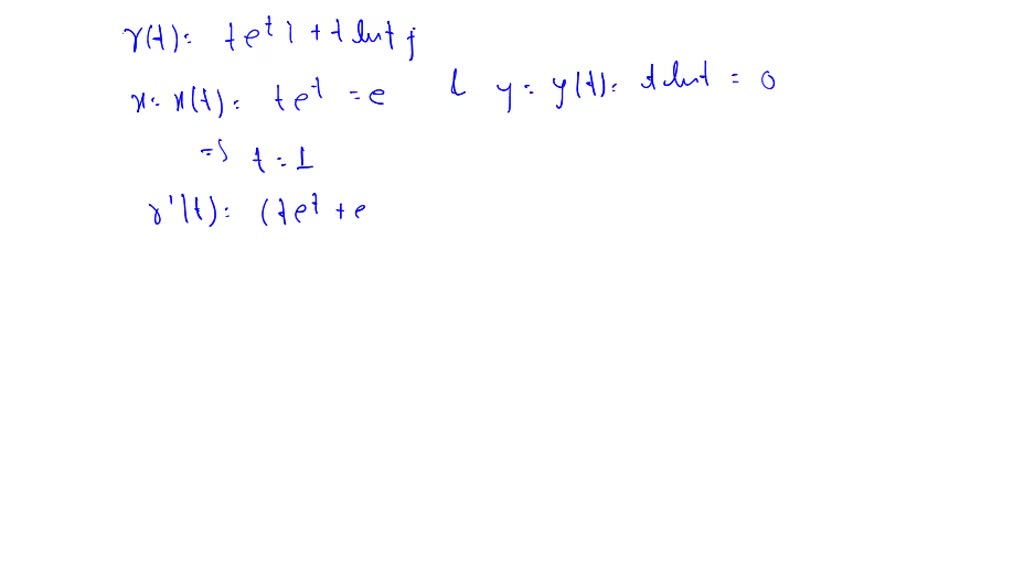 r(t): te^t i + t ln t j
x = x(t): te^t = e & y = y(t): t ln t = 0
=> t = 1
r'(t): (te^t + e